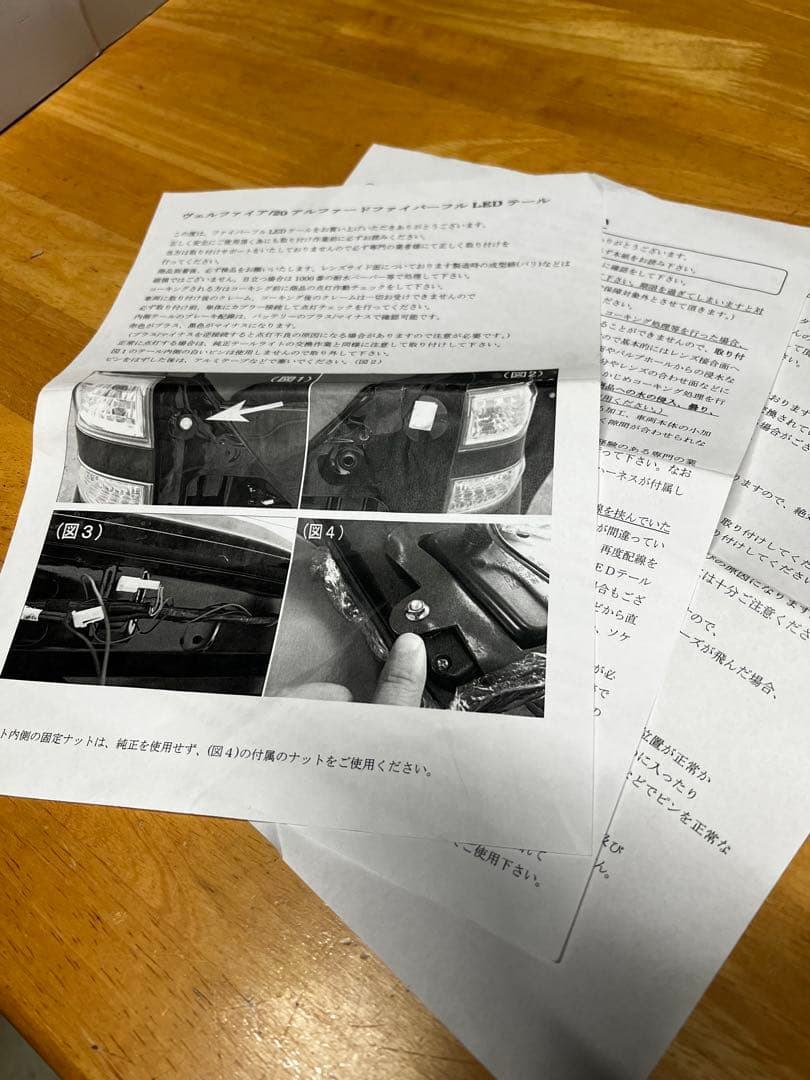 ヴェルファイア/20アルファードファイバーフル LED テール
この度は、ファイバーフル LED テールをお買い上げいただきありがとうございます。
正しく安全にご使用頂く為にも取り付け作業前に必ずお読みください。
当方は取り付けサポートをいたしておりませんので必ず専門の業者様にて正しく取り付けを
行ってください。
商品到着後、必ず検品をお願いいたします。レンズサイド面についております製造時の成型跡(バリ)などは
破損ではございません。目立つ場合は1000番の耐水ペーパー等で処理して下さい。
コーキングされる方はコーキング前に商品の点灯作動チェックをして下さい。
車両に取り付け後のクレーム、コーキング後のクレームは一切お受けできませんので
必ず取り付け前、車体にカプラー接続して点灯チェックを行ってください。
内側テールのブレーキ配線は、バッテリーのプラス/マイナスで確認可能です。
赤色がプラス、黒色がマイナスになります。
(プラス/マイナスを逆接続すると点灯不良の原因になる場合がありますので注意が必要です。)
正常に点灯する場合は、純正テールライトの交換作業と同様に注意して取り付けして下さい。
図1のテール内側の白いピンは使用しませんので取り外して下さい。
ピンをはずした後は、アルミテープなどで塞いでください。(図2)
(図1)
(図2)
(図3)
(図4)
ト内側の固定ナットは、純正を使用せず、(図4)の付属のナットをご使用ください。
りがとうございます。
ず本紙をお読み下さい。
に確認をして下さい。
下さい。期限を過ぎてしまいますと対
保障対象外とさせて頂きます。)
ださい。
コーキング処理等を行った場合、
ることができませんので、取り付
ので基本的にはレンズ接合面へ
やバルブホールからの浸水な
分やレンズの合わせ面などに
かじめコーキング処理を行
品への水の浸入、曇り、
用ください。)
加工、車両本体の小加
隙間が合わせられな
経験のある専門の業
って下さい。なお
ハーネスが付属し
線を挟んでいた
が間違ってい
再度配線を
EDテール
場合もござ
どから直
、ソケ
が必
で
の
れて
ご使用下さい。
おります
交換されてい
場合がござ
ますので、絶
取り付けしてくだ
り付けしてください
の原因になりま
は十分ご注意くださ
すので、
ーズが飛んだ場合、
位置が正常か
に入ったり
などでピンを正常な
及び
ん。